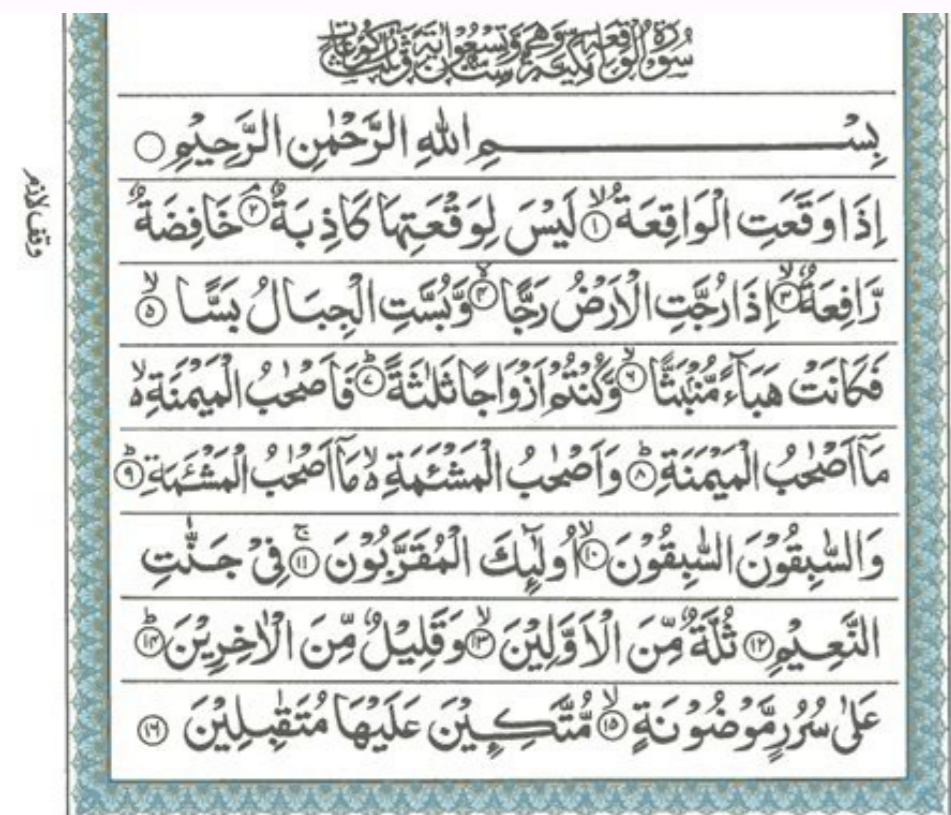 سُوْرَةُ الْوَاقِعَةِ مَكِّيَّةٌ وَّهِيَ سِتٌّ وَّتِسْعُوْنَ اٰيَةً وَّثَلٰثُ رُكُوْعَاتٍ
بِسْمِ اللهِ الرَّحْمٰنِ الرَّحِيْمِ ○
اِذَا وَقَعَتِ الْوَاقِعَةُ ۙ﴿۱﴾ لَيْسَ لِوَقْعَتِهَا كَاذِبَةٌ ۘ﴿۲﴾ خَافِضَةٌ
رَّافِعَةٌ ۙ﴿۳﴾ اِذَا رُجَّتِ الْاَرْضُ رَجًّا ۙ﴿۴﴾ وَّبُسَّتِ الْجِبَالُ بَسًّا ۙ﴿۵﴾
فَكَانَتْ هَبَآءً مُّنْۢبَثًّا ۙ﴿۶﴾ وَّكُنْتُمْ اَزْوَاجًا ثَلٰثَةً ؕ﴿۷﴾ فَاَصْحٰبُ الْمَيْمَنَةِ ۙ۬
مَاۤ اَصْحٰبُ الْمَيْمَنَةِ ؕ﴿۸﴾ وَاَصْحٰبُ الْمَشْـَٔمَةِ ۙ۬ مَاۤ اَصْحٰبُ الْمَشْـَٔمَةِ ؕ﴿۹﴾
وَالسّٰبِقُوْنَ السّٰبِقُوْنَ ۙ﴿۱۰﴾ اُولٰٓئِكَ الْمُقَرَّبُوْنَ ۚ﴿۱۱﴾ فِيْ جَنّٰتِ
النَّعِيْمِ ﴿۱۲﴾ ثُلَّةٌ مِّنَ الْاَوَّلِيْنَ ۙ﴿۱۳﴾ وَقَلِيْلٌ مِّنَ الْاٰخِرِيْنَ ؕ﴿۱۴﴾
عَلٰى سُرُرٍ مَّوْضُوْنَةٍ ۙ﴿۱۵﴾ مُّتَّكِـِٕيْنَ عَلَيْهَا مُتَقٰبِلِيْنَ ﴿۱۶﴾
وقف لازم